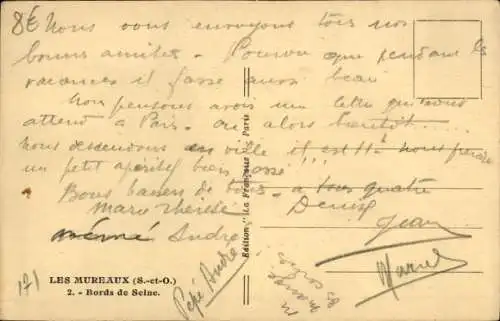 8€ Nous vous envoyons tous nos
bonnes amitiés - Pourvu que pendant les
vacances il fasse aussi beau
Nous pensons avoir une lettre qui nous
attend à Paris - ou alors bientôt.....
nous descendrons en ville nous prendre
un petit apéritif bien tassé
Bons baisers de tous - a tous quatre
Marie Thérèse Denise
mémé André Jean
Pépé André Marcel
Edition "La Française" Paris
LES MUREAUX (S.-et-O.)
2. - Bords de Seine.
171